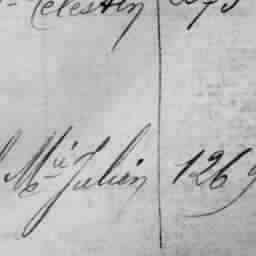 Celestin
Mie Julien 1269